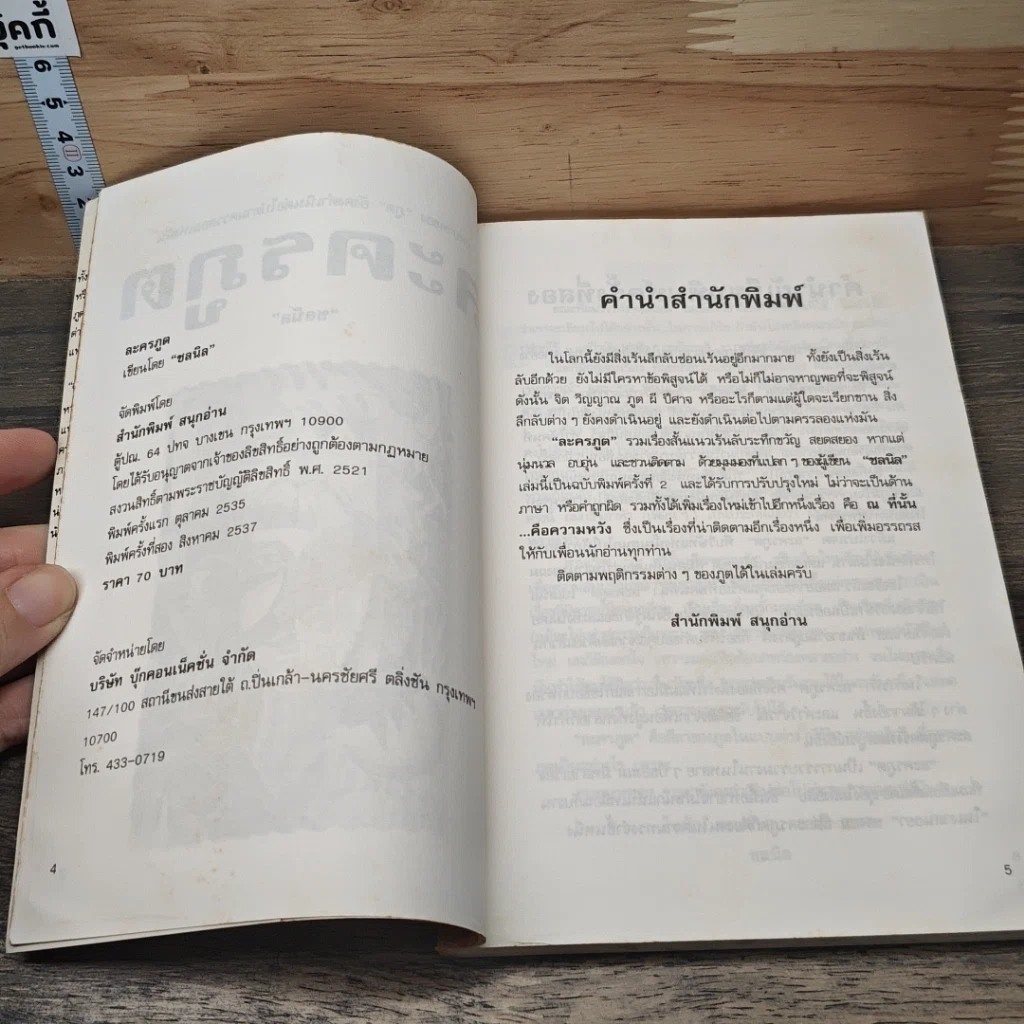 getbookie.com
6
5
4
3
2
ละครภูต
เขียนโดย “ชลนิล”
จัดพิมพ์โดย
สำนักพิมพ์ สนุกอ่าน
ตู้ปณ. 64 ปทจ บางเขน กรุงเทพฯ 10900
โดยได้รับอนุญาตจากเจ้าของลิขสิทธิ์อย่างถูกต้องตามกฎหมาย
สงวนสิทธิ์ตามพระราชบัญญัติลิขสิทธิ์ พ.ศ. 2521
พิมพ์ครั้งแรก ตุลาคม 2535
พิมพ์ครั้งที่สอง สิงหาคม 2537
ราคา 70 บาท
จัดจำหน่ายโดย
บริษัท บุ๊กคอนเน็คชั่น จำกัด
147/100 สถานีขนส่งสายใต้ ถ.ปิ่นเกล้า-นครชัยศรี ตลิ่งชัน กรุงเทพฯ
10700
โทร. 433-0719
4
คำนำสำนักพิมพ์
ในโลกนี้ยังมีสิ่งเร้นลึกลับซ่อนเร้นอยู่อีกมากมาย ทั้งยังเป็นสิ่งเร้น
ลับอีกด้วย ยังไม่มีใครหาข้อพิสูจน์ได้ หรือไม่ก็ไม่อาจหาญพอที่จะพิสูจน์
ดังนั้น จิต วิญญาณ ภูต ผี ปีศาจ หรืออะไรก็ตามแต่ผู้ใดจะเรียกขาน สิ่ง
ลึกลับต่าง ๆ ยังคงดำเนินอยู่ และยังดำเนินต่อไปตามครรลองแห่งมัน
“ละครภูต” รวมเรื่องสั้นแนวเร้นลับระทึกขวัญ สยดสยอง หากแต่
นุ่มนวล อบอุ่น และชวนติดตาม ด้วยมุมมองที่แปลก ๆ ของผู้เขียน “ชลนิล”
เล่มนี้เป็นฉบับพิมพ์ครั้งที่ 2 และได้รับการปรับปรุงใหม่ ไม่ว่าจะเป็นด้าน
ภาษา หรือคำถูกผิด รวมทั้งได้เพิ่มเรื่องใหม่เข้าไปอีกหนึ่งเรื่อง คือ ณ ที่นั้น
...คือความหวัง ซึ่งเป็นเรื่องที่น่าติดตามอีกเรื่องหนึ่ง เพื่อเพิ่มอรรถรส
ให้กับเพื่อนนักอ่านทุกท่าน
ติดตามพฤติกรรมต่าง ๆ ของภูตได้ในเล่มครับ
สำนักพิมพ์ สนุกอ่าน
5